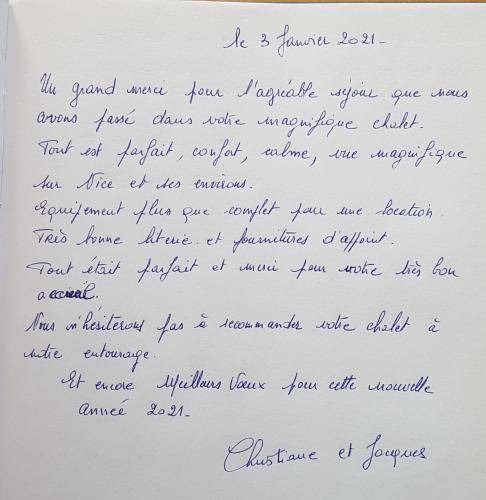 le 3 Janvier 2021-
Un grand merci pour l'agréable séjour que nous
avons passé dans votre magnifique chalet.
Tout est parfait, confort, calme, vue magnifique
sur Nice et ses environs.
Equipement plus que complet pour une location.
Très bonne literie et fournitures d'appoint.
Tout était parfait et merci pour votre très bon
accueil.
Nous n'hésiterons pas à recommander votre chalet à
notre entourage.
Et encore Meilleurs Vœux pour cette nouvelle
année 2021-
Christiane et Jacques